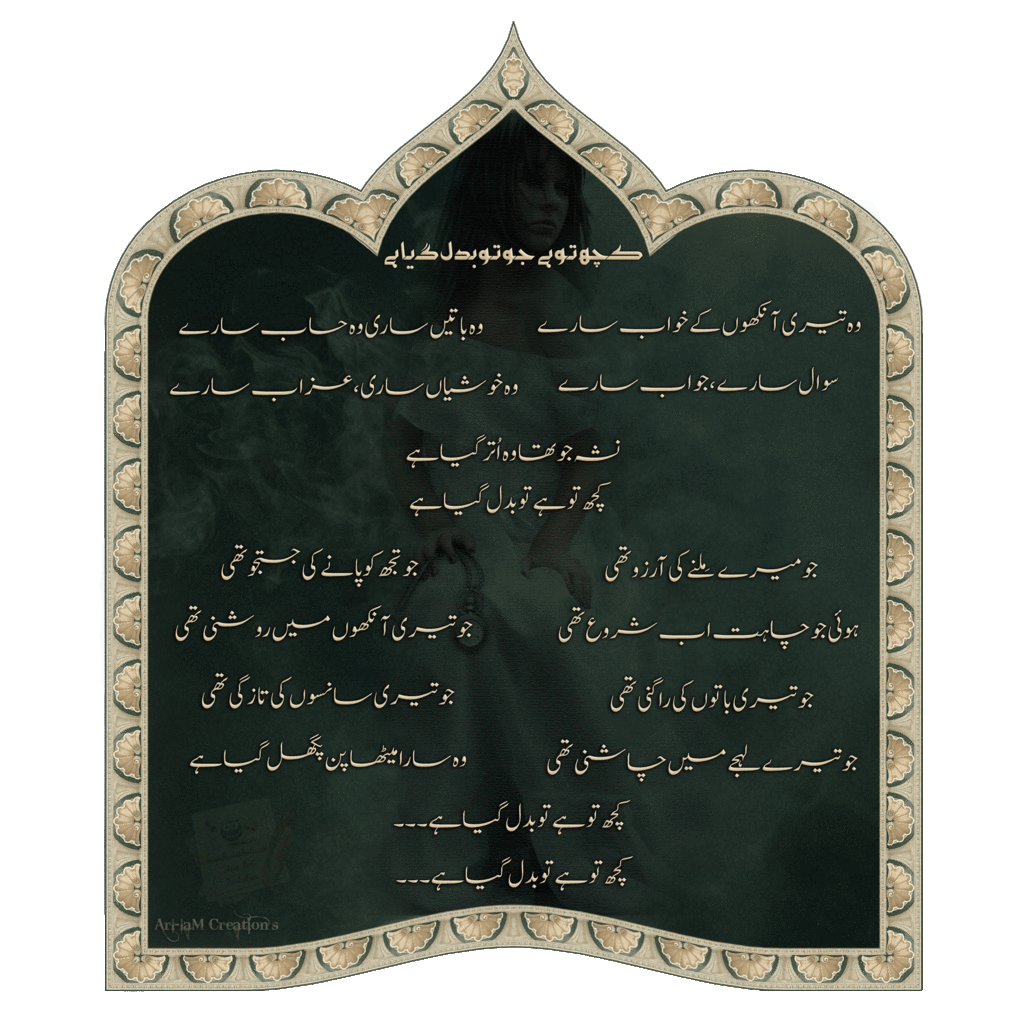 کچھ تو ہے جو تو بدل گیا ہے
وہ تیری آنکھوں کے خواب سارے
وہ باتیں ساری وہ حساب سارے
سوال سارے، جواب سارے
وہ خوشیاں ساری، عزاب سارے
نشہ جو تھا وہ اُتر گیا ہے
کچھ تو ہے تو بدل گیا ہے
جو میرے ملنے کی آرزو تھی
جو تجھ کو پانے کی جستجو تھی
ہوئی جو چاہت اب شروع تھی
جو تیری آنکھوں میں روشنی تھی
جو تیری باتوں کی راگنی تھی
جو تیری سانسوں کی تازگی تھی
جو تیرے لہجے میں چاشنی تھی
وہ سارا میٹھا پن پگھل گیا ہے
کچھ تو ہے تو بدل گیا ہے۔۔۔
کچھ تو ہے تو بدل گیا ہے۔۔۔
Creation's